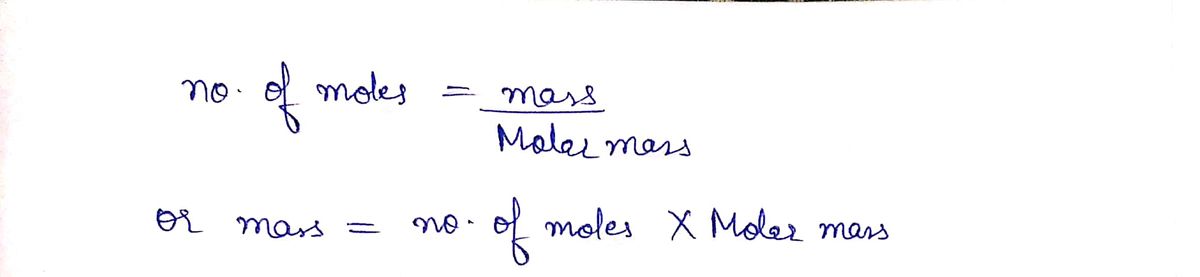 no. of moles = mass
Molar mass
or mass = no. of moles X Molar mass